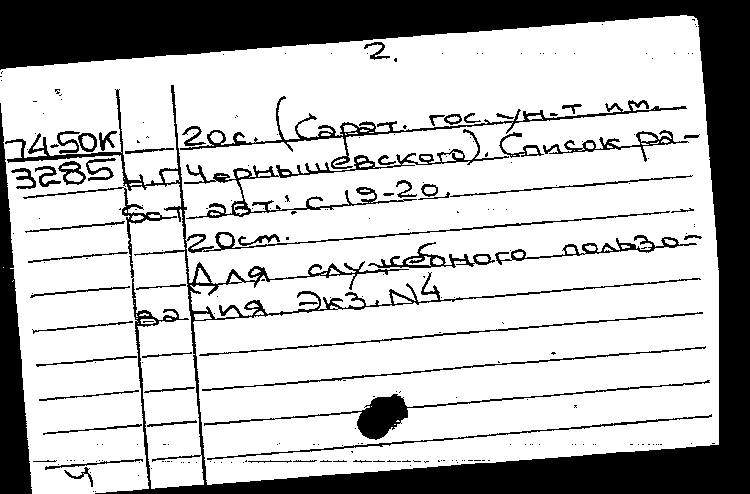 2.
74-50К 20с. (Сарат. гос. ун-т им.
3285 Н.Г.Чернышевского). Список ра-
бот авт.: с. 19-20.
20см.
Для служебного пользо-
вания. Экз. N4
ч